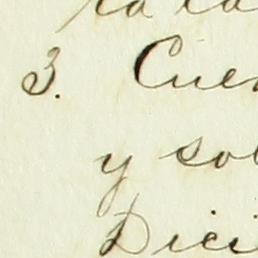 3. Cuen
y sol
Dici